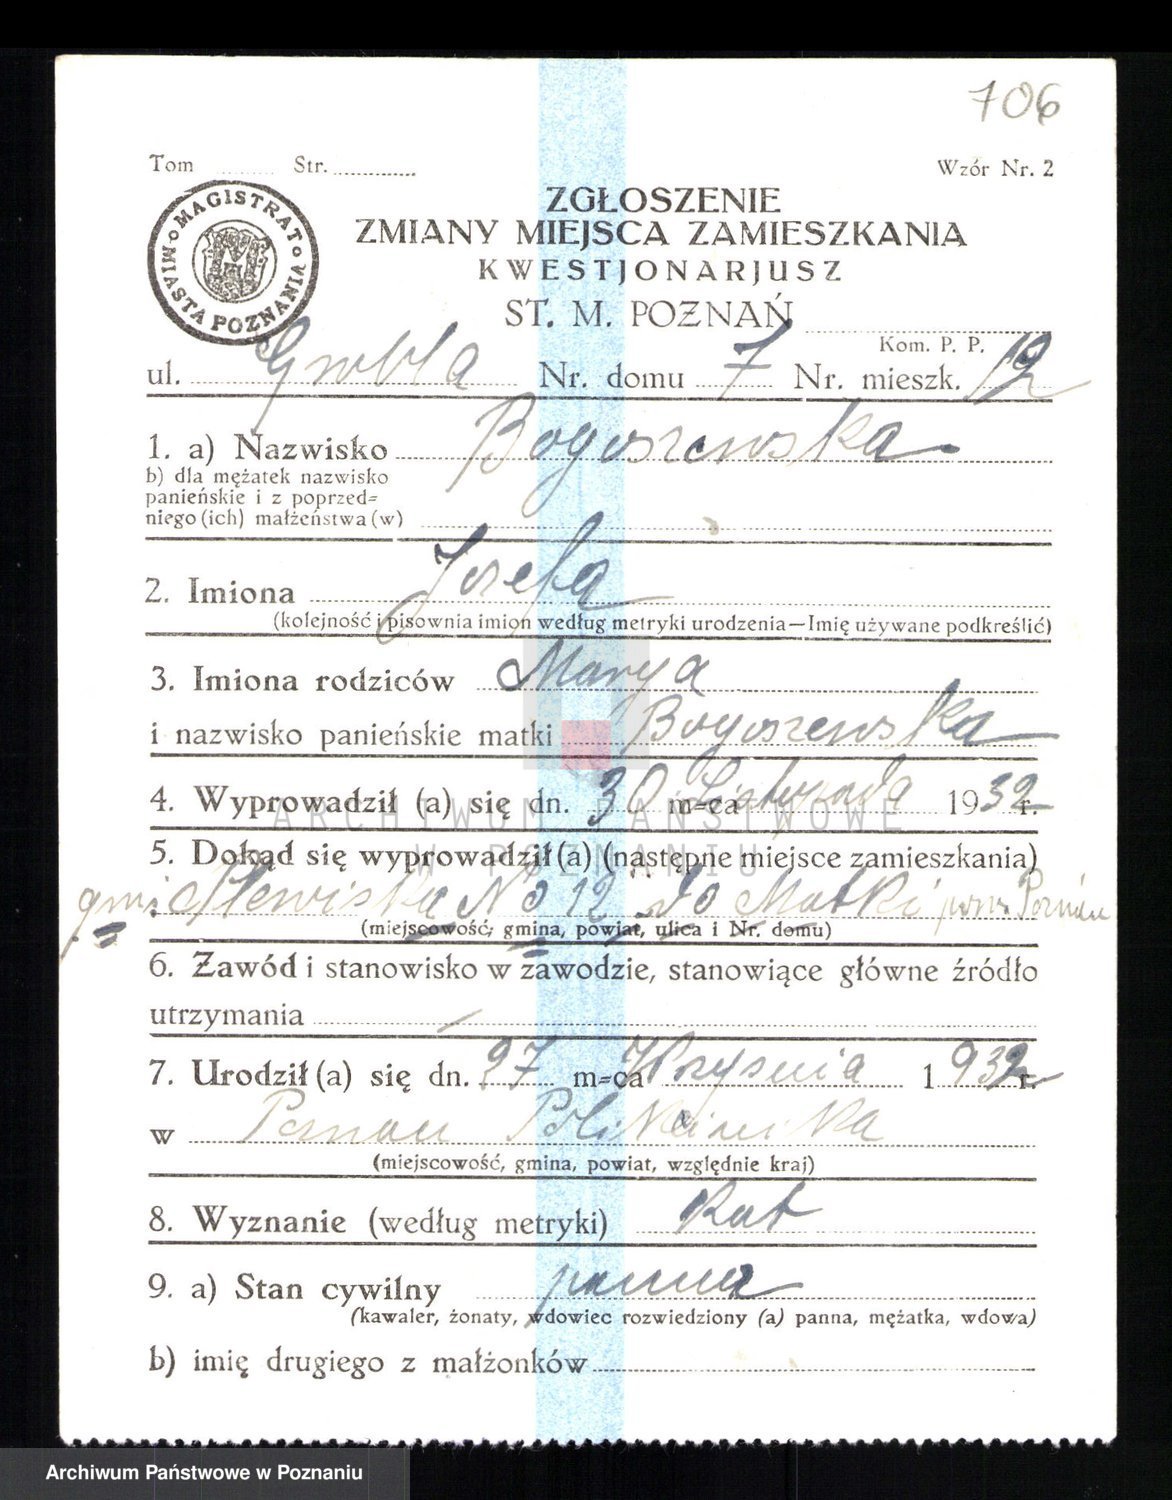 706
Tom Str. Wzór Nr. 2
MAGISTRAT MIASTA POZNANIA
ZGŁOSZENIE
ZMIANY MIEJSCA ZAMIESZKANIA
KWESTJONARJUSZ
ST. M. POZNAŃ
Kom. P. P.
ul. Grobla Nr. domu 7 Nr. mieszk. 12
1. a) Nazwisko Bogoszewska
b) dla mężatek nazwisko
panieńskie i z poprzed=
niego (ich) małżeństwa (w)
2. Imiona Jozefa
(kolejność i pisownia imion według metryki urodzenia—Imię używane podkreślić)
3. Imiona rodziców Marya
i nazwisko panieńskie matki Bogoszewska
4. Wyprowadził (a) się dn. 30 m=ca Listopada 1932 r.
ARCHIWUM PAŃSTWOWE
W POZNANIU
5. Dokąd się wyprowadził (a) (następne miejsce zamieszkania)
No 12 do Matki pow. Poznań
(miejscowość, gmina, powiat, ulica i Nr. domu)
6. Zawód i stanowisko w zawodzie, stanowiące główne źródło
utrzymania
7. Urodził (a) się dn. 27 m=ca 1932 r.
w Poznań
(miejscowość, gmina, powiat, względnie kraj)
8. Wyznanie (według metryki) Kat
9. a) Stan cywilny panna
(kawaler, żonaty, wdowiec rozwiedziony (a) panna, mężatka, wdowa)
b) imię drugiego z małżonków
Archiwum Państwowe w Poznaniu